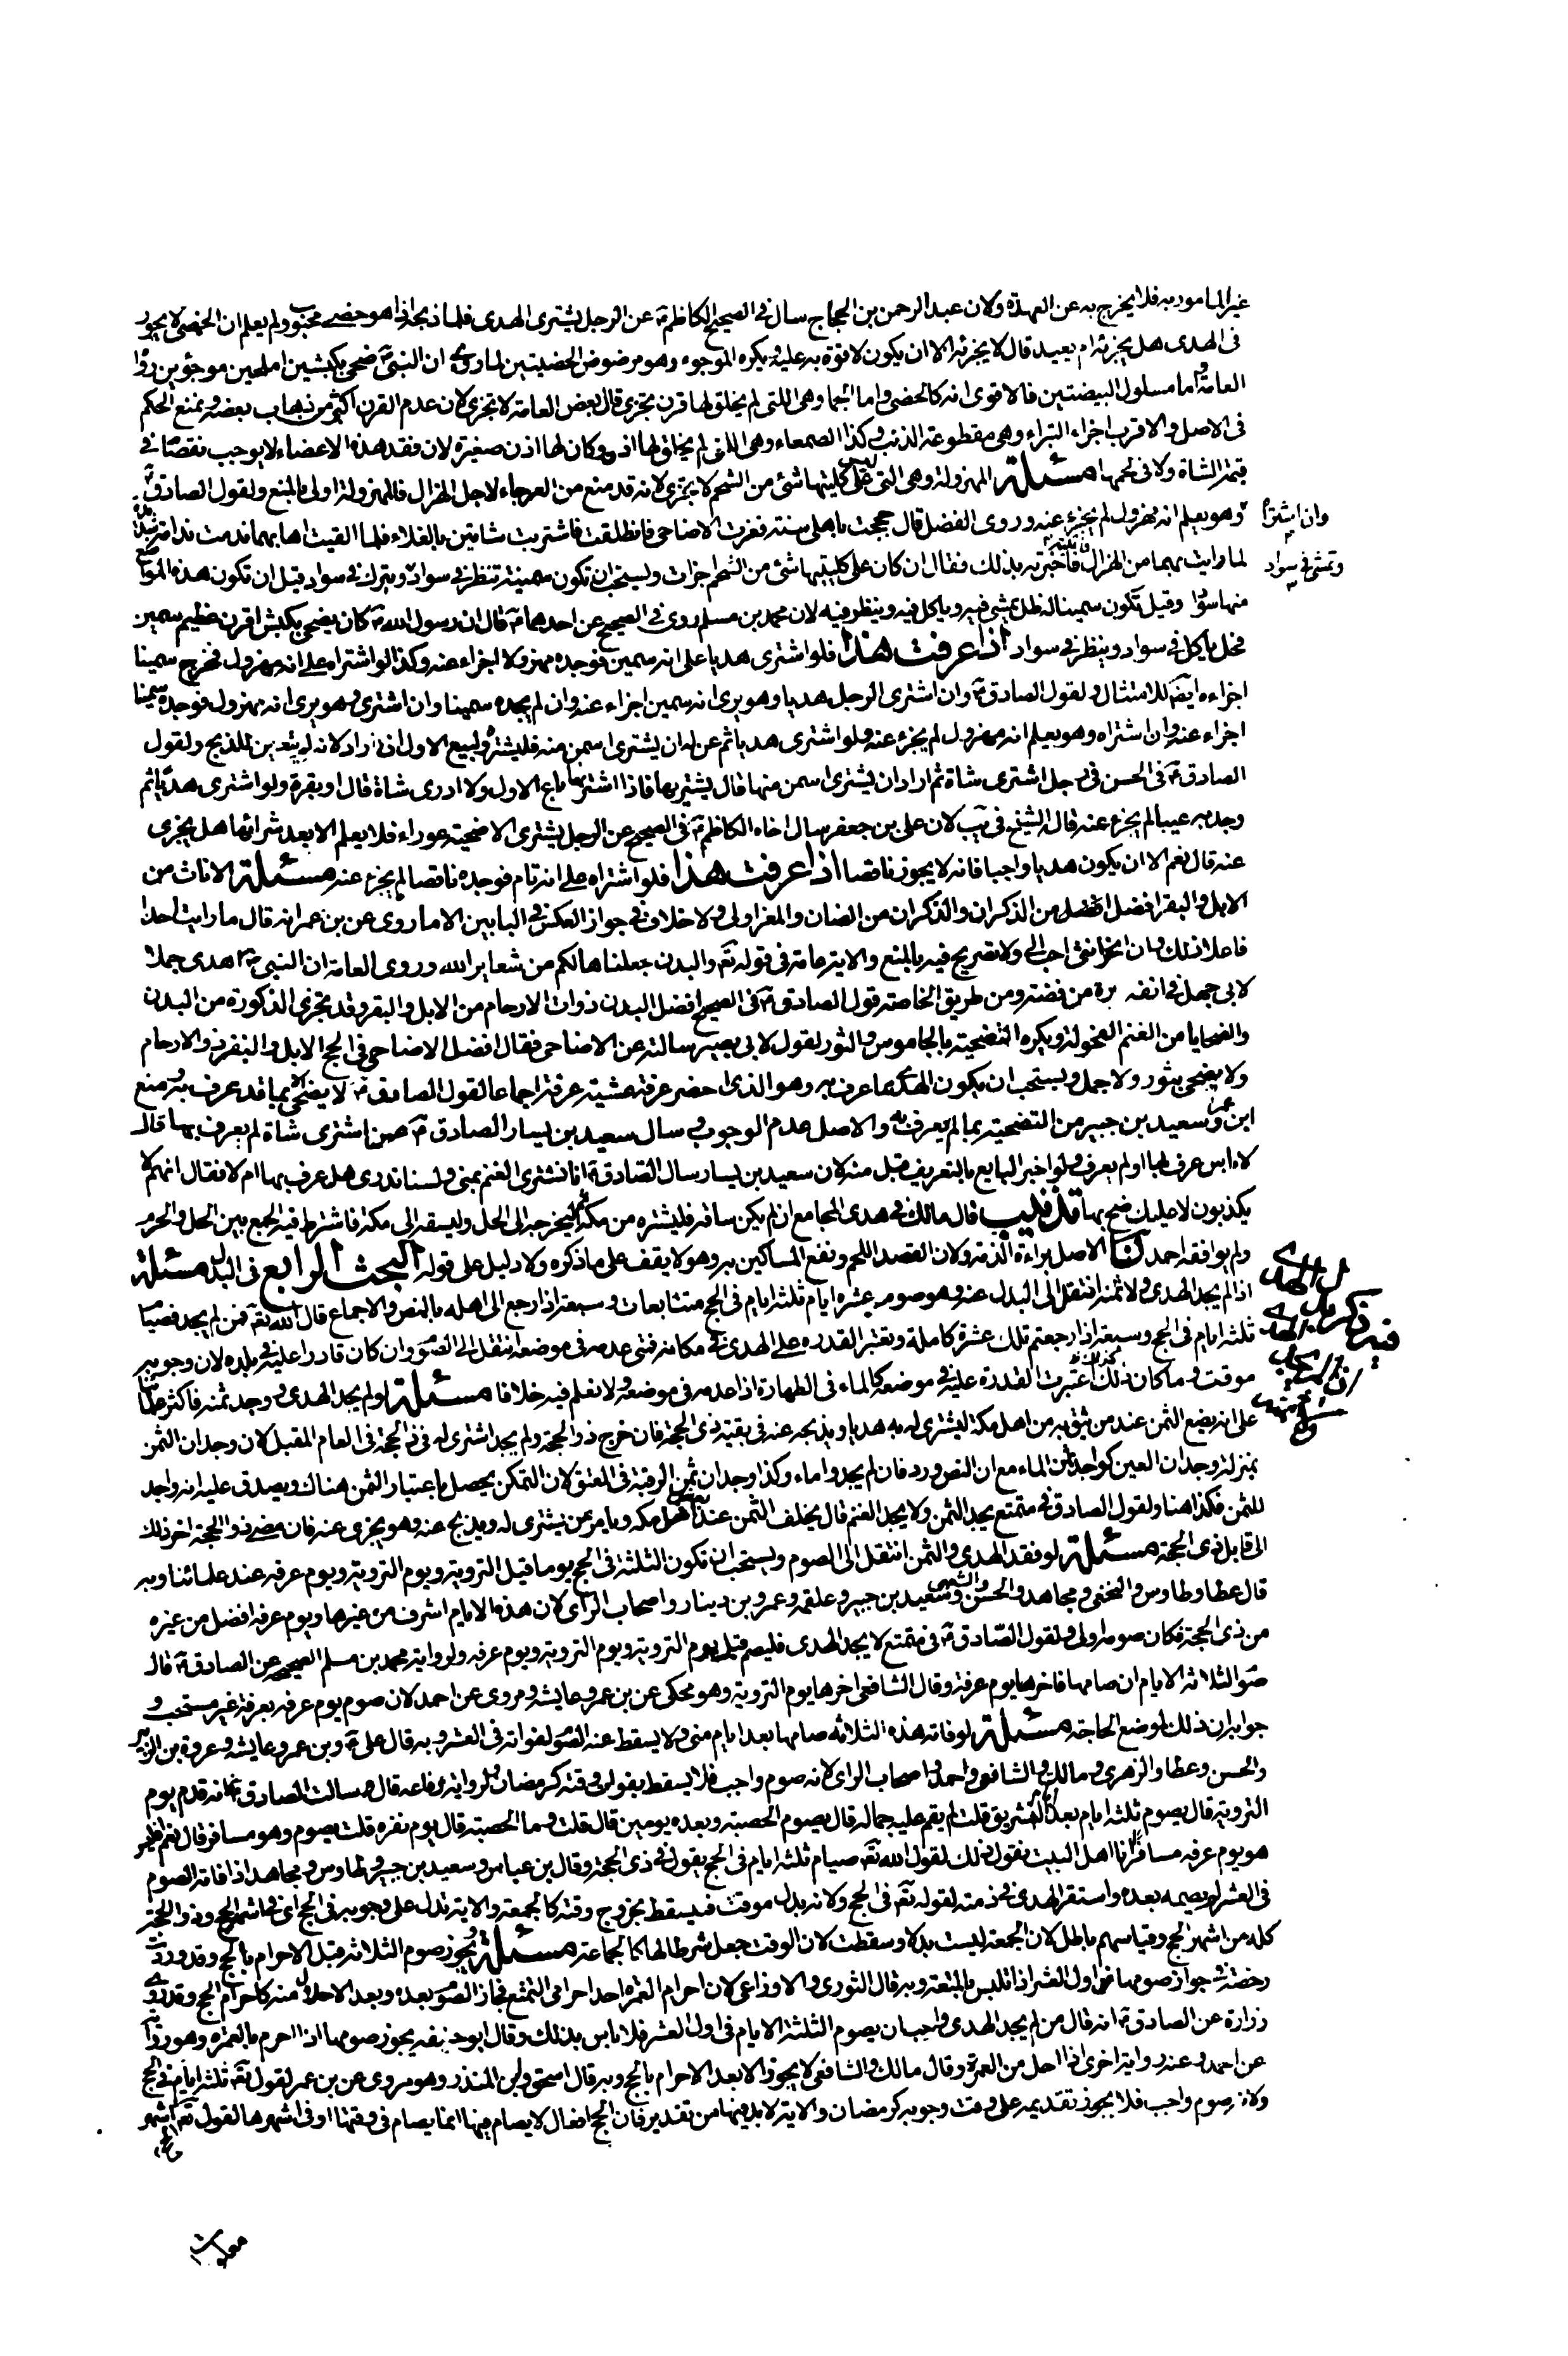 غير المامور به فلا يخرج به عن العهدة ولان عبد الرحمن بن الحجاج سال في الصحيح الكاظم ع عن الرجل يشتري الهدى فلما ذبحه اذا هو خصي مجبوب ولم يعلم ان الخصي لا يجوز
في الهدى هل يجزئه ام يعيد قال لا يجزئه الا ان يكون لا قوة به عليه ويكره الموجوء وهو مرضوض الخصيتين لما روى ان النبي ص ضحى بكبشين املحين موجوئين رواه
العامة واما مسلول البيضتين فالاقوى انه كالخصي واما الجما وهي اللتي لم يخلق لها قرن يجزي قال بعض العامة لا تجزي لان عدم القرن اكثر من ذهاب بعضه ونمنع الحكم
في الاصل والاقرب اجزاء البتراء وهي مقطوعة الذنب وكذا الصمعاء وهي اللتي لم يخلق لها اذن وكان لها اذن صغيرة لان فقد هذه الاعضاء لا يوجب نقصا في
قيمة الشاة ولا في لحمها مسئلة المهزولة وهي التي ليس على كليتيها شئ من الشحم لا يجزي لانه قد منع من العرجاء لاجل الهزال فالمهزولة اولى بالمنع ولقول الصادق ع
وان اشتراه
وهو يعلم انه مهزول لم يجزء عنه وروى الفضل قال حججت باهلي سنة فعزت الاضاحي فانطلقت فاشتريت شاتين بالغلاء فلما القيت اهابهما ندمت ندامة شديدة
لما رايت بهما من الهزال فاتيته فاخبرته بذلك فقال ان كان على كليتيها شئ من الشحم اجزات ويستحب ان تكون سمينة تنظر في سواد ويبرك في سواد قيل ان تكون هذه المواضع
وتمشى في سواد
منها سودا وقيل تكون سمينا له ظل يمشى فيه وياكل فيه وينظر فيه لان محمد بن مسلم روى في الصحيح عن احدهما ع قال ان رسول الله ص كان يضحى بكبش اقرن عظيم سمين
فحل ياكل في سواد وينظر في سواد اذا عرفت هذا فلو اشترى هديا على انه سمين فوجده مهزولا اجزاء عنه وكذا لو اشتراه على انه مهزول فخرج سمينا
اجزاءه ايضا للامتثال ولقول الصادق ع وان اشترى الرجل هديا وهو يرى انه سمين اجزاء عنه وان لم يجده سمينا وان اشترى وهو يرى انه مهزول فوجده سمينا
اجزاء عنه وان اشتراه وهو يعلم انه مهزول لم يجزء عنه ولو اشترى هديا ثم عن له ان يشترى اسمن منه فليشتره وليبيع الاول اذا اراد لانه لم يتعين للذبح ولقول
الصادق ع في الحسن في رجل اشترى شاة ثم اراد ان يشترى اسمن منها قال يشتريها فاذا اشتريها باع الاولى ولا ادرى شاة قال او بقرة ولو اشترى هديا ثم
وجد به عيبا لم يجزء عنه قال الشيخ في يب لان على بن جعفر سال اخاه الكاظم ع في الصحيح عن الرجل يشترى الاضحية عوراء فلا يعلم الا بعد شرائها هل يجزى
عنه قال نعم الا ان يكون هديا واجبا فانه لا يجوز ناقصا اذا عرفت هذا فلو اشتراه على انه تام فوجده ناقصا لم يجزء عنه مسئلة الاناث من
الابل والبقر افضل من الذكران والذكران من الضان والمعز اولى ولا خلاف في جواز العكس في البابين الا ما روى عن بن عمر انه قال ما رايت احدا
فاعلا ذلك وان انحر انثى احب الى ولا تصريح فيه بالمنع والاية عامة في قوله تعالى والبدن جعلناها لكم من شعاير الله وروى العامة ان النبي ص اهدى جملا
لابى جهل في انفه برة من فضة ومن طريق الخاصة قول الصادق ع في الصحيح افضل البدن ذوات الارحام من الابل والبقر وقد يجزى الذكورة من البدن
والضحايا من الغنم الفحولة ويكره التضحية بالجاموس والثور لقول لابى بصير سالته عن الاضاحي فقال افضل الاضاحي في الحج الابل والبقر ذو الارحام
ولا يضحى بثور ولا جمل ويستحب ان يكون الهدى مما عرف به وهو الذى احضر عرفة عشية عرفة اجماعا لقول الصادق ع لا يضحى الا بما قد عرف به ومنع
ابن عمر وسعيد بن جبير من التضحية بما لم يعرف به والاصل عدم الوجوب وسال سعيد بن يسار الصادق ع عمن اشترى شاة لم يعرف بها قال
لا باس عرف بها او لم يعرف ولو اخبر البايع بالتعريف قبل منه لان سعيد بن يسار سال الصادق ع انا نشترى الغنم بمنى ولسنا ندرى هل عرف بها ام لا فقال انهم لا
يكذبون لا عليك ضح بها تذنيب قال مالك في هدى المجامع ان لم يكن ساقه فليشتره من مكة ثم ليخرجه الى الحل وليسقه الى مكة فاشترط فيه الجمع بين الحل والحرم
ولم يوافقه احد لنا الاصل براءة الذمة ولان القصد اللحم ونفع المساكين به وهو لا يقف على ما ذكره ولا دليل على قوله البحث الرابع في البدل مسئلة
اذا لم يجد الهدى ولا ثمنه انتقل الى البدل عنه وهو صوم عشرة ايام ثلثة ايام في الحج متتابعات وسبعة اذا رجع الى اهله بالنص والاجماع قال الله تعالى فمن لم يجد فصيام
ثلثة ايام في الحج وسبعة اذا رجعتم تلك عشرة كاملة وتعتبر القدرة على الهدى في مكانه فمتى عدمه في موضعه انتقل الى الصوم وان كان قادرا عليه في بلده لان وجوبه
موقت وما كان كذلك اعتبرت القدرة عليه في موضعه كالماء في الطهارة اذا عدمه في موضعه ولا نعلم فيه خلافا مسئلة لو لم يجد الهدى ووجد ثمنه فاكثر علمائنا
على انه يضع الثمن عند من يثق به من اهل مكة ليشترى له به هديا ويذبحه عنه في بقية ذى الحجة فان خرج ذو الحجة ولم يجد اشترى له في ذى الحجة في العام المقبل لان وجدان الثمن
بمنزلة وجدان العين كواجد ثمن الماء مع ان النص ورد فان لم يجدوا ماء وكذا وجدان ثمن الرقبة في العتق لان التمكن يحصل باعتبار الثمن هناك ويصدق عليه انه واجد
للثمن فكذا هنا ولقول الصادق ع في متمتع يجد الثمن ولا يجد الغنم قال يخلف الثمن عند بعض اهل مكه ويامر من يشترى له ويذبح عنه وهو يجزى عنه فان مضى ذو الحجة اخر ذلك
الى قابل ذى الحجة مسئلة لو فقد الهدى والثمن انتقل الى الصوم ويستحب ان تكون الثلثة في الحج يوما قبل التروية ويوم التروية ويوم عرفه عند علمائنا وبه
قال عطا وطاوس والشعبى والنخعى ومجاهد والحسن وسعيد بن جبير وعلقمه وعمرو بن دينار واصحاب الراى لان هذه الايام اشرف من غيرها ويوم عرفه افضل من غيره
من ذى الحجة فكان صومه اولى ولقول الصادق ع في متمتع لا يجد الهدى فليصم قبل يوم التروية ويوم التروية ويوم عرفه ولرواية محمد بن مسلم الصحيحه عن الصادق ع قال
صوم الثلاثه الايام ان صامها فاخرها يوم عرفة وقال الشافعي اخرها يوم التروية وهو محكى عن بن عمر وعايشه ومروى عن احمد لان صوم يوم عرفه بعرفة غير مستحب و
جوابه ان ذلك لوضع الحاجة مسئلة لو فاته هذه الثلاثه صامها بعد ايام منى ولا يسقط عنه الصوم لفواته في العشر وبه قال على ع وبن عمر وعايشه وعروة بن الزبير
والحسن وعطا والزهرى ومالك والشافعي واحمد واصحاب الراى لانه صوم واجب فلا يسقط بفوات وقته كرمضان ولرواية رفاعه قال سالت الصادق ع فانه قدم يوم
التروية قال يصوم ثلثة ايام بعد ايام التشريق قلت لم يقم عليه جماله قال يصوم الحصبة وبعده يومين قال قلت وما الحصبة قال يوم نفره قلت يصوم وهو مسافر قال نعم اليس
هو يوم عرفه مسافرا انا اهل البيت نقول ذلك لقول الله تعالى صيام ثلثة ايام في الحج يقول في ذى الحجة وقال بن عباس وسعيد بن جبير وطاوس ومجاهد اذا فاته الصوم
في العشر لم يصمه بعده واستقر الهدى في ذمته لقوله تعالى في الحج ولانه بدل موقت فيسقط بخروج وقته كالجمعة والاية تدل على وجوبه في الحج اى في اشهر الحج وذو الحجة
كله من اشهر الحج وقياسهم باطل لان الجمعة ليست بدلا وسقطت لان الوقت جعل شرطا لها كالجماعة مسئلة ويجوز صوم الثلاثة قبل الاحرام بالحج وقد وردت
رخصة في جواز صومها في اول العشر اذا تلبس بالمتعة وبه قال الثورى والاوزاعى لان احرام العمره احد احرامى التمتع فجاز الصوم بعده وبعد الاحلال منه كاحرام الحج وقد روى
زرارة عن الصادق ع انه قال من لم يجد الهدى واحب ان يصوم الثلثة الايام في اول العشر فلا باس بذلك وقال ابو حنيفه يجوز صومها اذا احرم بالعمره وهو رواية
عن احمد وعنه رواية اخرى اذا احل من العمرة وقال مالك والشافعى لا يجوز الا بعد الاحرام بالحج وبه قال اسحق وابن المنذر وهو مروى عن بن عمر لقوله تعالى ثلثة ايام في الحج
ولانه صوم واجب فلا يجوز تقديمه على وقت وجوبه كرمضان والاية لا بد فيها من تقدير فان الحج افعال لا يصام فيها انما يصام في وقتها او في اشهرها لقوله تعالى الحج اشهر
معلومات